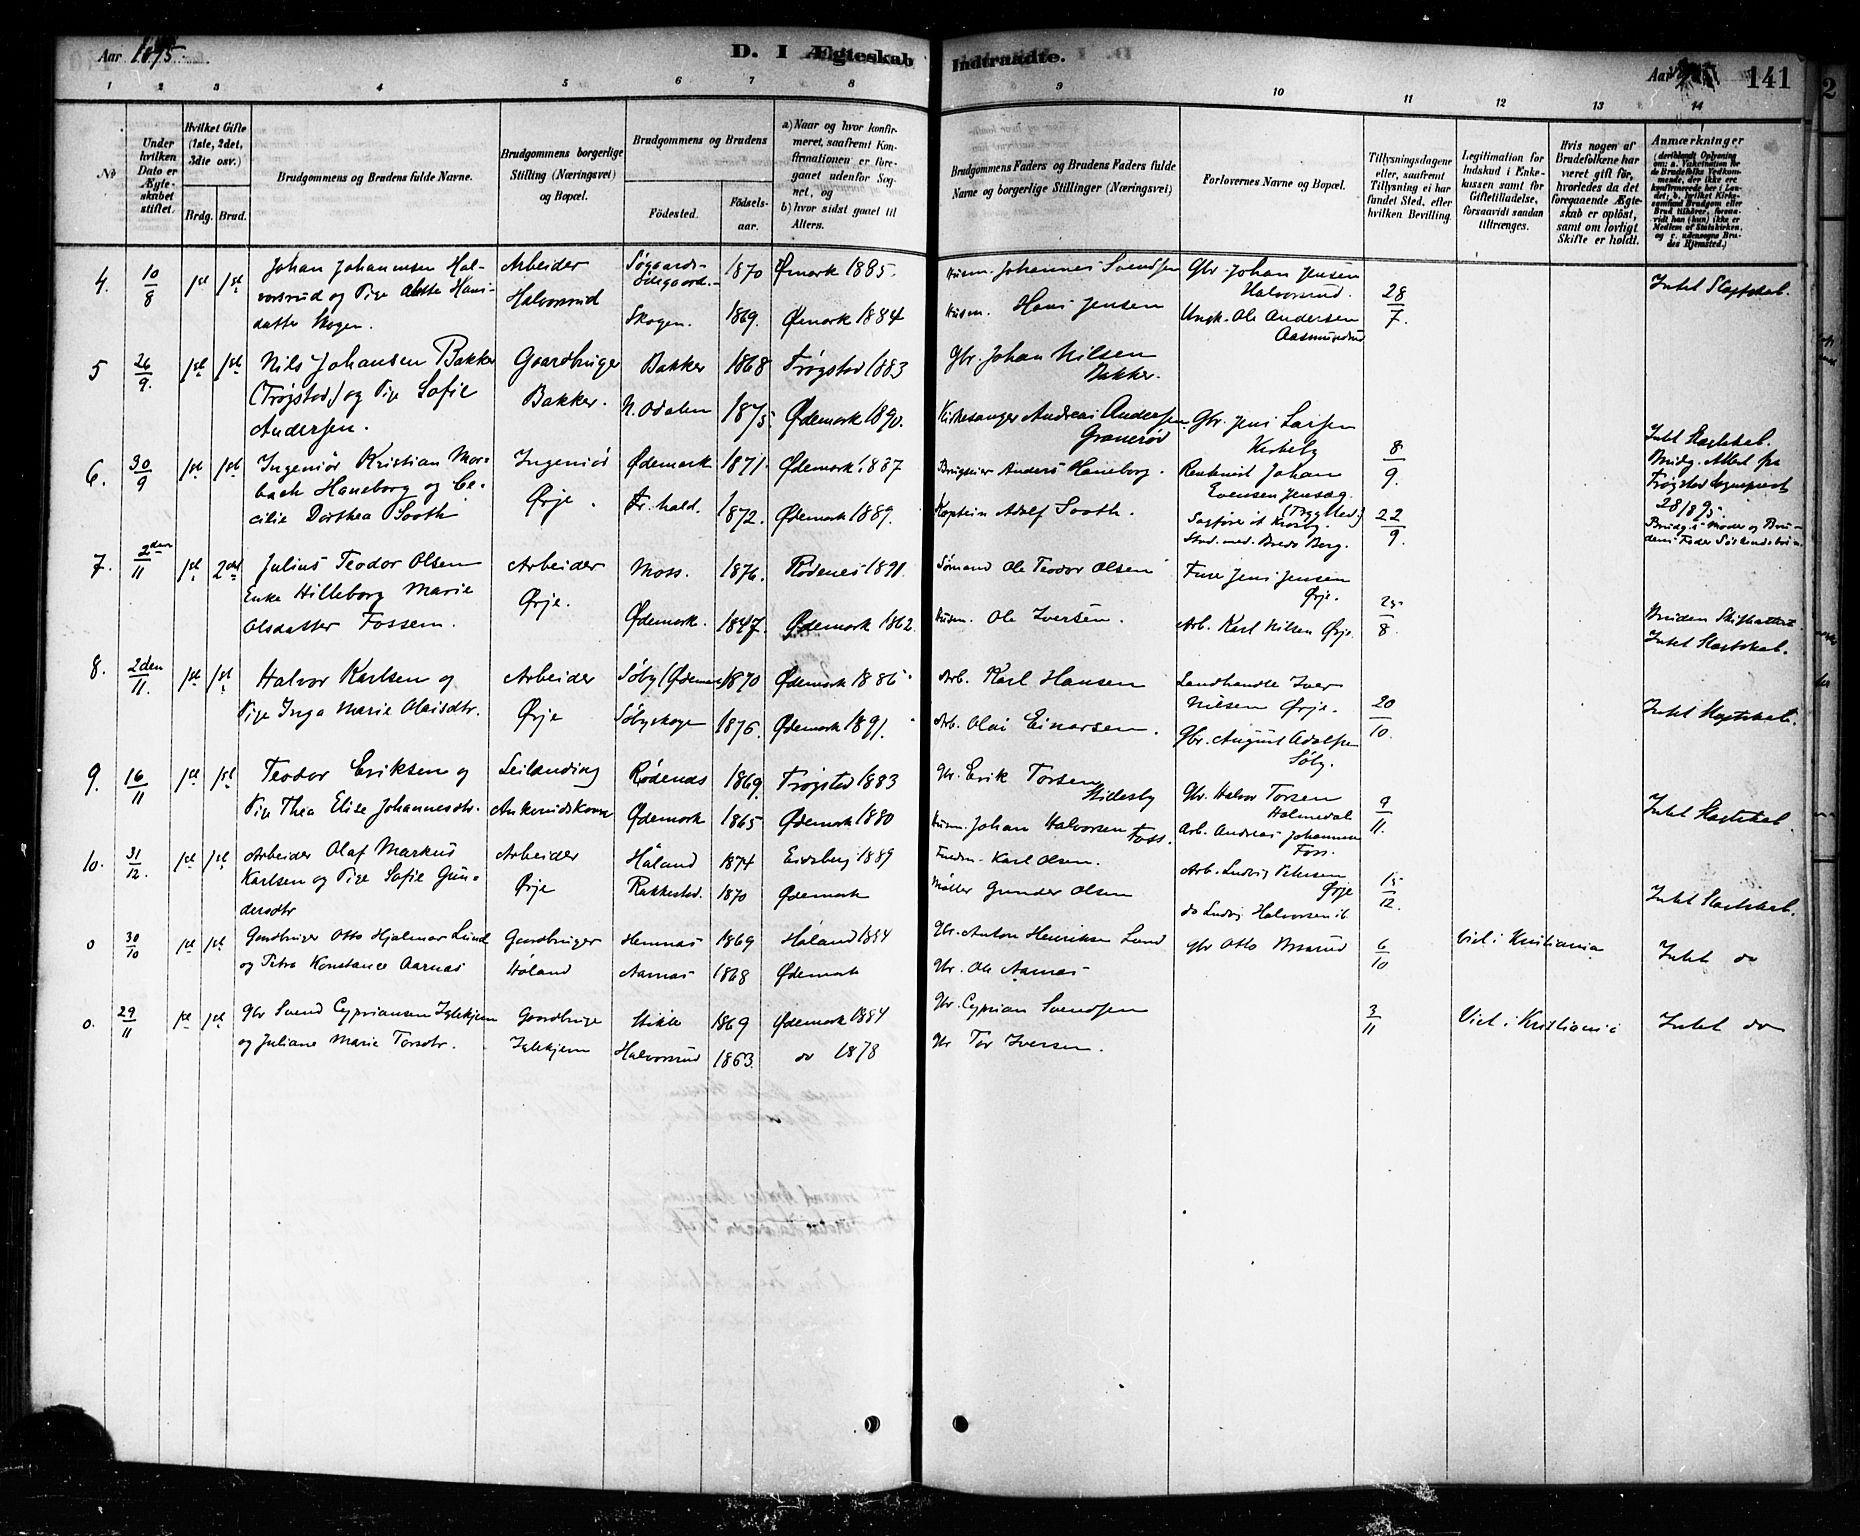 Aar 1895.
D. I Ægteskab Indtraadte.
Aar 141
1 2 3 4 5 6 7 8 9 10 11 12 13 14
No
Under hvilken Dato er Ægteskabet stiftet.
Hvilket Gifte (1ste, 2det, 3die osv.)
Brdg. Brud.
Brudgommens og Brudens fulde Navne.
Brudgommens borgerlige Stilling (Næringsvei) og Bopæl.
Brudgommens og Brudens
Födested. Födselsaar.
a) Naar og hvor konfirmeret, saafremt Konfirmationen er foregaaet udenfor Sognet, og
b) hvor sidst gaaet til Alters.
Brudgommens Faders og Brudens Faders fulde Navne og borgerlige Stillinger (Næringsvei)
Forlovernes Navne og Bopæl.
Tillysningsdagene eller, saafremt Tillysning ei har fundet Sted, efter hvilken Bevilling.
Legitimation for Indskud i Enkekassen samt for Giftetilladelse, forsaavidt saadan tiltrænges.
Hvis nogen af Brudefolkene har været gift för, hvorledes da det foregaaende Ægteskab er oplöst, samt om lovligt Skifte er holdt.
Anmærkninger
4. 10/8 1st 1st Johan Johannesen Halvorsrud og Pige Hansdatter Skogen.
Arbeider Halvorsrud
1870 Ømark 1885.
Skogen. 1869. Ødemark 1884
Husm. Johannes Svendsen
Husm. Hans Jensen
Gbr. Johan Jensen Halvorsrud.
Ungk. Ole Andersen Aasmundrud
28/7.
Intet Slægtskab.
5 26/9. 1st 1st Nils Johansen Bakker (Trøgstad) og Pige Sofie Andersen.
Gaardbruger Bakker.
Bakker 1868 Trøgstad 1883
N. Odalen 1875. Ødemark 1890.
Gbr. Johan Nilsen Bakker.
Kirkesanger Andreas Andersen Granerød
Gbr. Jens Larsen Kirkeby
8/9.
Intet Slægtskab.
Brudg. Attest fra Trøgstad Sognepræst 28/8 95.
6. 30/9 1st 1st Ingeniør Kristian Morbach Haneborg og Cecilie Dorthea Sooth
Ingeniør Ørje.
Ødemark 1871. Ødemark 1887
Fr.hald. 1872. Ødemark 1889.
Brugseier Anders Haneborg.
Kaptein Adolf Sooth.
Rentenist Johan Evensen Jensæg (Trygstad)
Sagfører
Stud. med. Brede Berg.
22/9.
Brudg.s Moder og Brudens Fader Søskendebørn
7. 2den/11 1st 2det Julius Teodor Olsen
Enke Hilleborg Marie Olsdatter Fossem.
Arbeider Ørje.
Moss. 1876. Rødenes 1891.
Ødemark. 1847. Ødemark 1862.
Sømand Ole Teodor Olsen
Husm. Ole Iversen.
Jens Jensen Ørje.
Arb. Karl Nilsen Ørje.
25/8.
Bruden Skifteattest.
Intet Slægtskab.
8. 2den/11. 1st 1st Halvor Karlsen og
Pige Inga Marie Olaisdtr.
Arbeider Ørje
Søby (Ødemark) 1870 Ødemark 1886.
Søbyskogen 1876. Ødemark 1891.
Arb. Karl Hansen
Arb. Olai Einarsen.
Landhandler Iver Nielsen Ørje.
Gbr. August Adolfsen Søby.
20/10.
Intet Slægtskab.
9. 16/11 1st 1st Teodor Eriksen og
Pige Thea Elise Johannesdtr.
Leilending
Rødenæs 1869. Trøgstad 1883
Ødemark 1865 Ødemark 1880
Gbr. Erik Torsen
Husm. Johan Halvorsen Foss.
Gbr. Halvor Torsen
Arb. Andreas Johannesen Foss.
9/11.
Intet Slægtskab.
10. 31/12. 1st 1st Arbeider Olaf Markus Karlsen og Pige Sofie Gundersdtr
Arbeider Ørje
Høland 1874 Eidsberg 1889
Rakkestad. 1870 Ødemark
Karl Olsen.
Møller Gunder Olsen
Arb. Ludvig Petersen Ørje
do Ludvig Halvorsen ib
15/12.
Intet Slægtskab.
0 30/10 1st 1st Gaardbruger Otto Hjalmar Lund
og Petra Konstance Aarnæs
Gaardbruger Høland
Hemnæs 1869 Høland 1884
Aarnæs 1868 Ødemark
Gbr. Anton Henriksen Lund
Gbr. Ole Aarnæs
Gbr Otto
6/10
Viet i Kristiania
Intet do
0. 29/11 1st 1st Gbr Svend Cypriansen Iglekjern
og Juliane Marie Torsdtr.
Gaardbruger Iglekjern
1869 Ødemark 1884
Halvorsrud 1863. do 1878
Gbr. Cyprian Svendsen
Gbr Tor Iversen.
3/11
Viet i Kristiania
Intet do